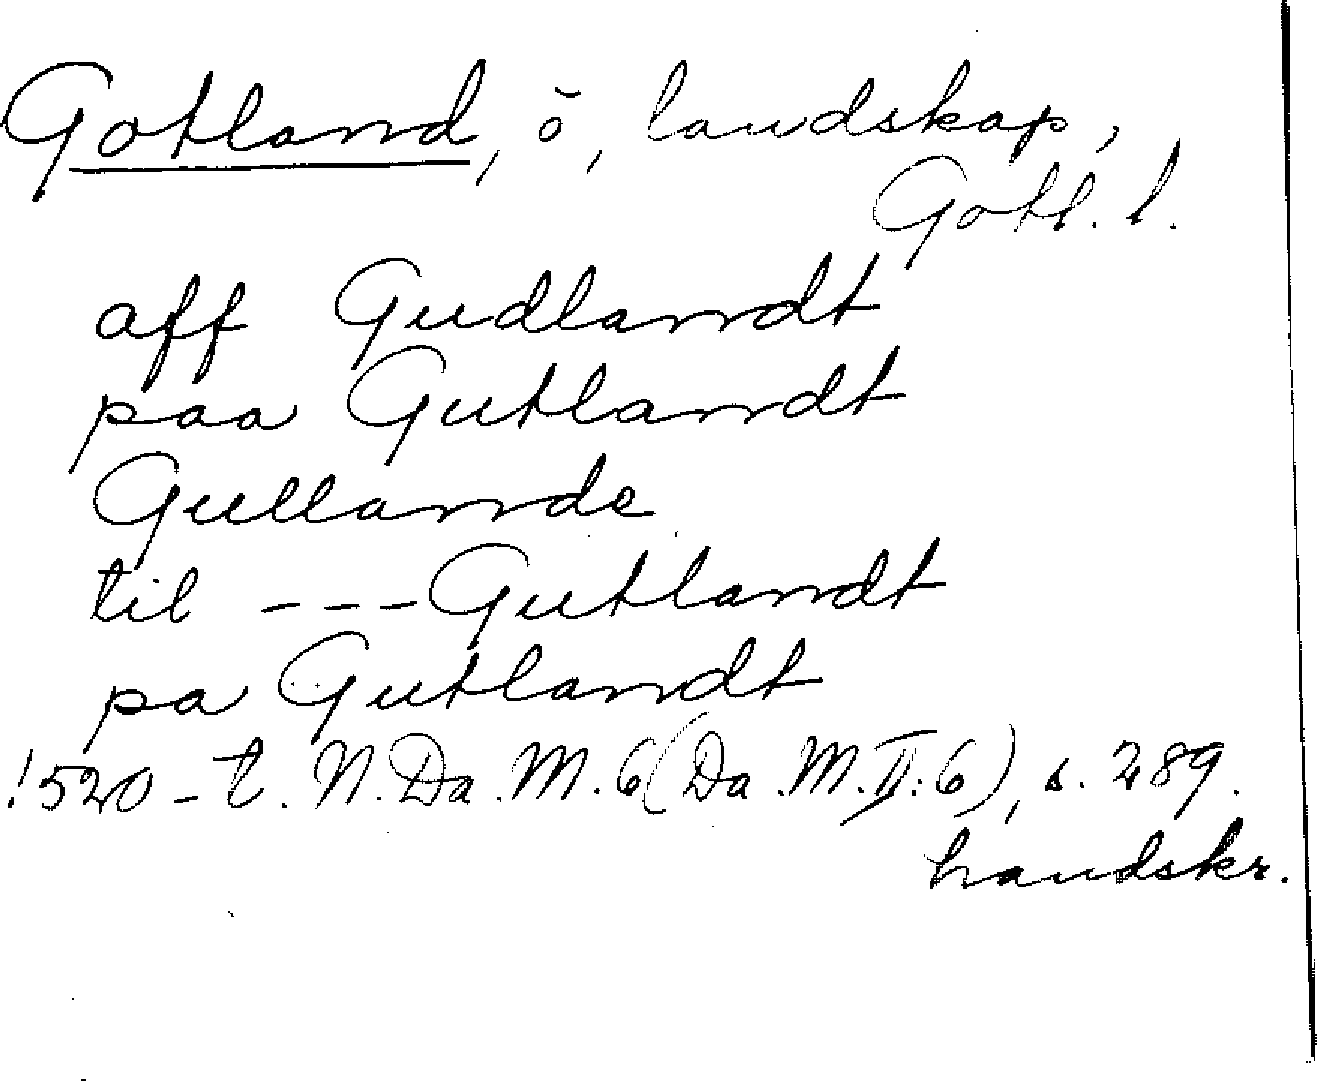 Gotland, ö, landskap,
Gotl. l.
aff Gudlandt
paa Gutlandt
Gullande
til --- Gutlandt
pa Gutlandt
1520-t. N. Da. M. 6 (Da. M. II: 6), s. 289.
handskr.